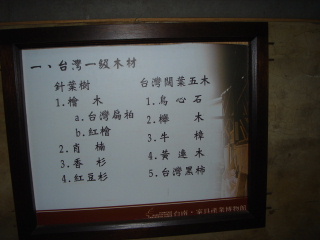 一、台灣一級木材
針葉樹
1.檜 木
a.台灣扁柏
b.紅檜
2.肖 楠
3.香 杉
4.紅豆杉
台灣闊葉五木
1.烏心石
2.櫸 木
3.牛 樟
4.黃連木
5.台灣黑柿
台南·家具產業博物館